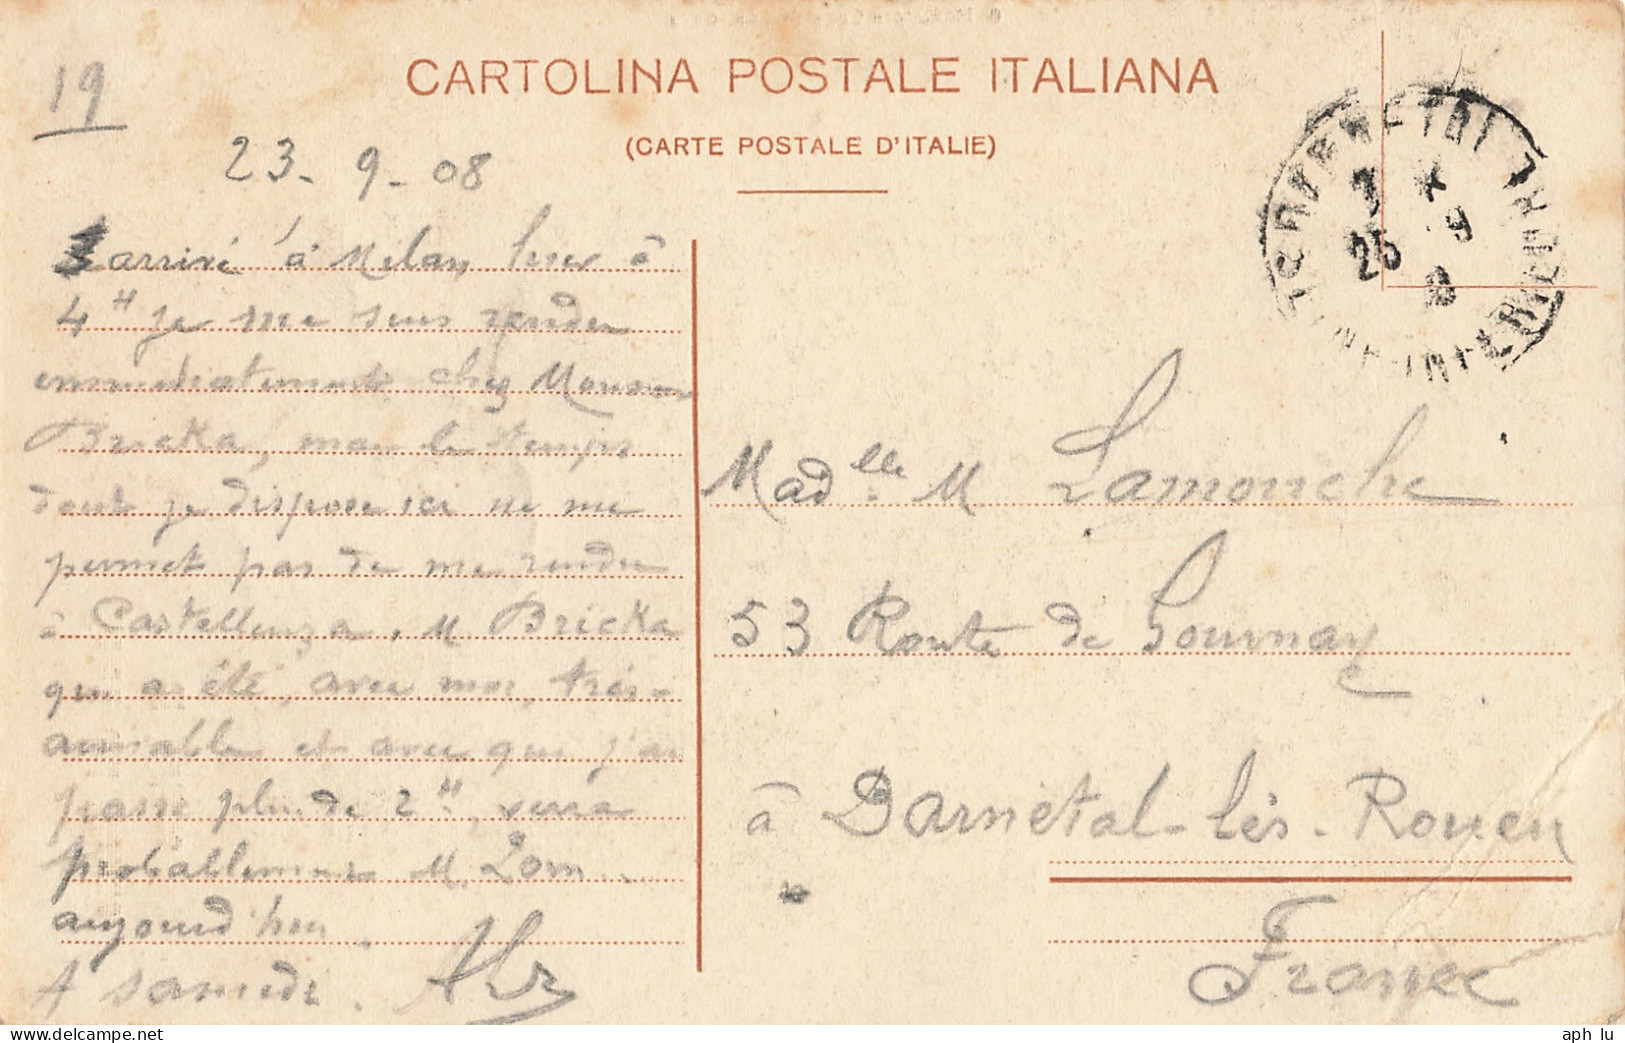 19
CARTOLINA POSTALE ITALIANA
(CARTE POSTALE D'ITALIE)
23-9-08
arrivé à Milan hier à
4 H je me suis rendu
immediatement chez Monsieur
Bricka, mais le temps
dont je dispose ici ne me
permet pas de me rendre
à Castellenza. M Bricka
qui a été, avec moi, très
aimable et avec qui j'ai
passé plus de 2 H, verra
probablement M. Zorn
aujourd'hui.
A samedi.
25 9
Mad elle M Lamouche
53 Route de Gournay
à Darnétal-lès-Rouen
France
aph_lu